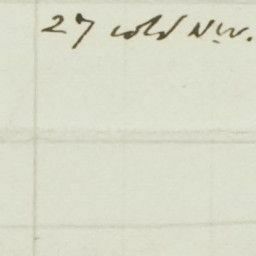 27 cold N.W.